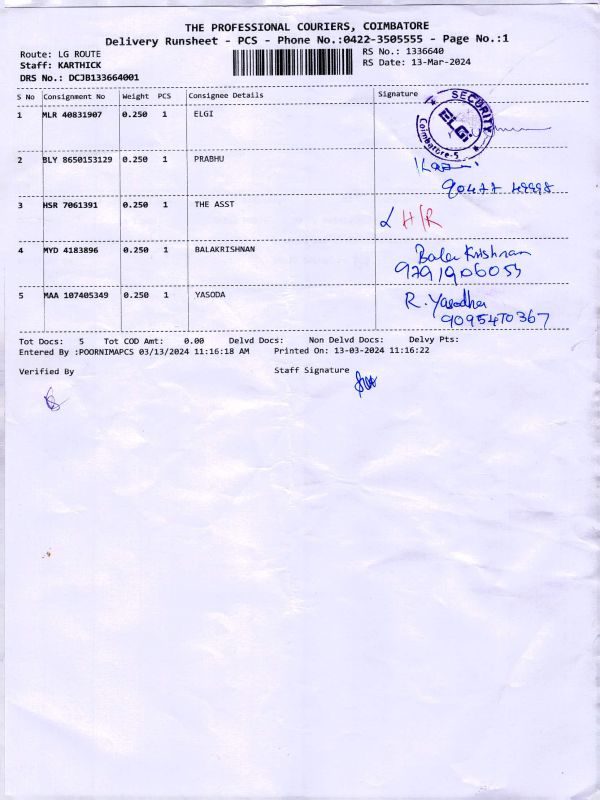 THE PROFESSIONAL COURIERS, COIMBATORE
Delivery Runsheet - PCS - Phone No.:0422-3505555 - Page No.:1
Route: LG ROUTE RS No.: 1336640
Staff: KARTHICK RS Date: 13-Mar-2024
DRS No.: DCJB133664001
S No Consignment No Weight PCS Consignee Details Signature
1 MLR 40831907 0.250 1 ELGI
SECURITY
ELGI
Coimbatore-5
2 BLY 8650153129 0.250 1 PRABHU
3 HSR 7061391 0.250 1 THE ASST H/R
4 MYD 4183896 0.250 1 BALAKRISHNAN Bala Krishnan
9791906053
5 MAA 107405349 0.250 1 YASODA R. Yasodha
9095470367
Tot Docs: 5 Tot COD Amt: 0.00 Delvd Docs: Non Delvd Docs: Delvy Pts:
Entered By :POORNIMAPCS 03/13/2024 11:16:18 AM Printed On: 13-03-2024 11:16:22
Verified By Staff Signature